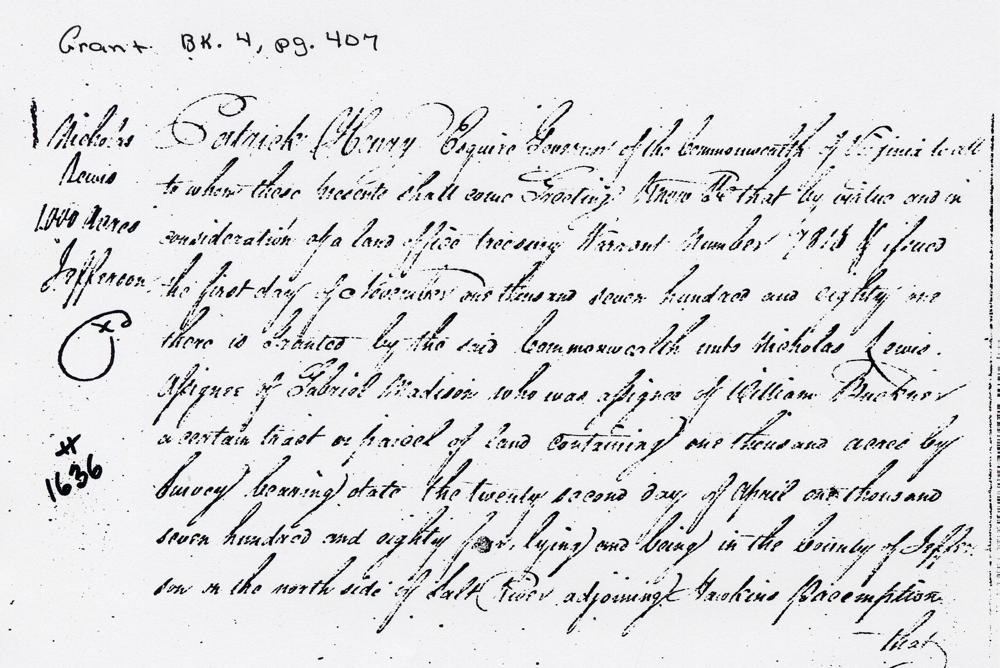 Grant. BK. 4, pg. 407
Nicholas
Lewis
1,000 Acres
Jefferson
Xd
#
1636
Patrick Henry Esquire Governor of the Commonwealth of Virginia to all
to whom these presents shall come Greeting Know Ye that by virtue and in
consideration of a land office treasury Warrant Number 7818 ifsued
the first day of November one thousand seven hundred and eighty one
there is Granted by the said Commonwealth unto Nicholas Lewis.
Afsignee of Gabriel Madison who was afsignee of William Buckner
a certain tract or parcel of land containing one thousand acres by
Survey bearing date the twenty second day of April one thousand
seven hundred and eighty four, lying and being in the County of Jeffer
son on the north side of Salt River adjoining Hawkins Preemption
that